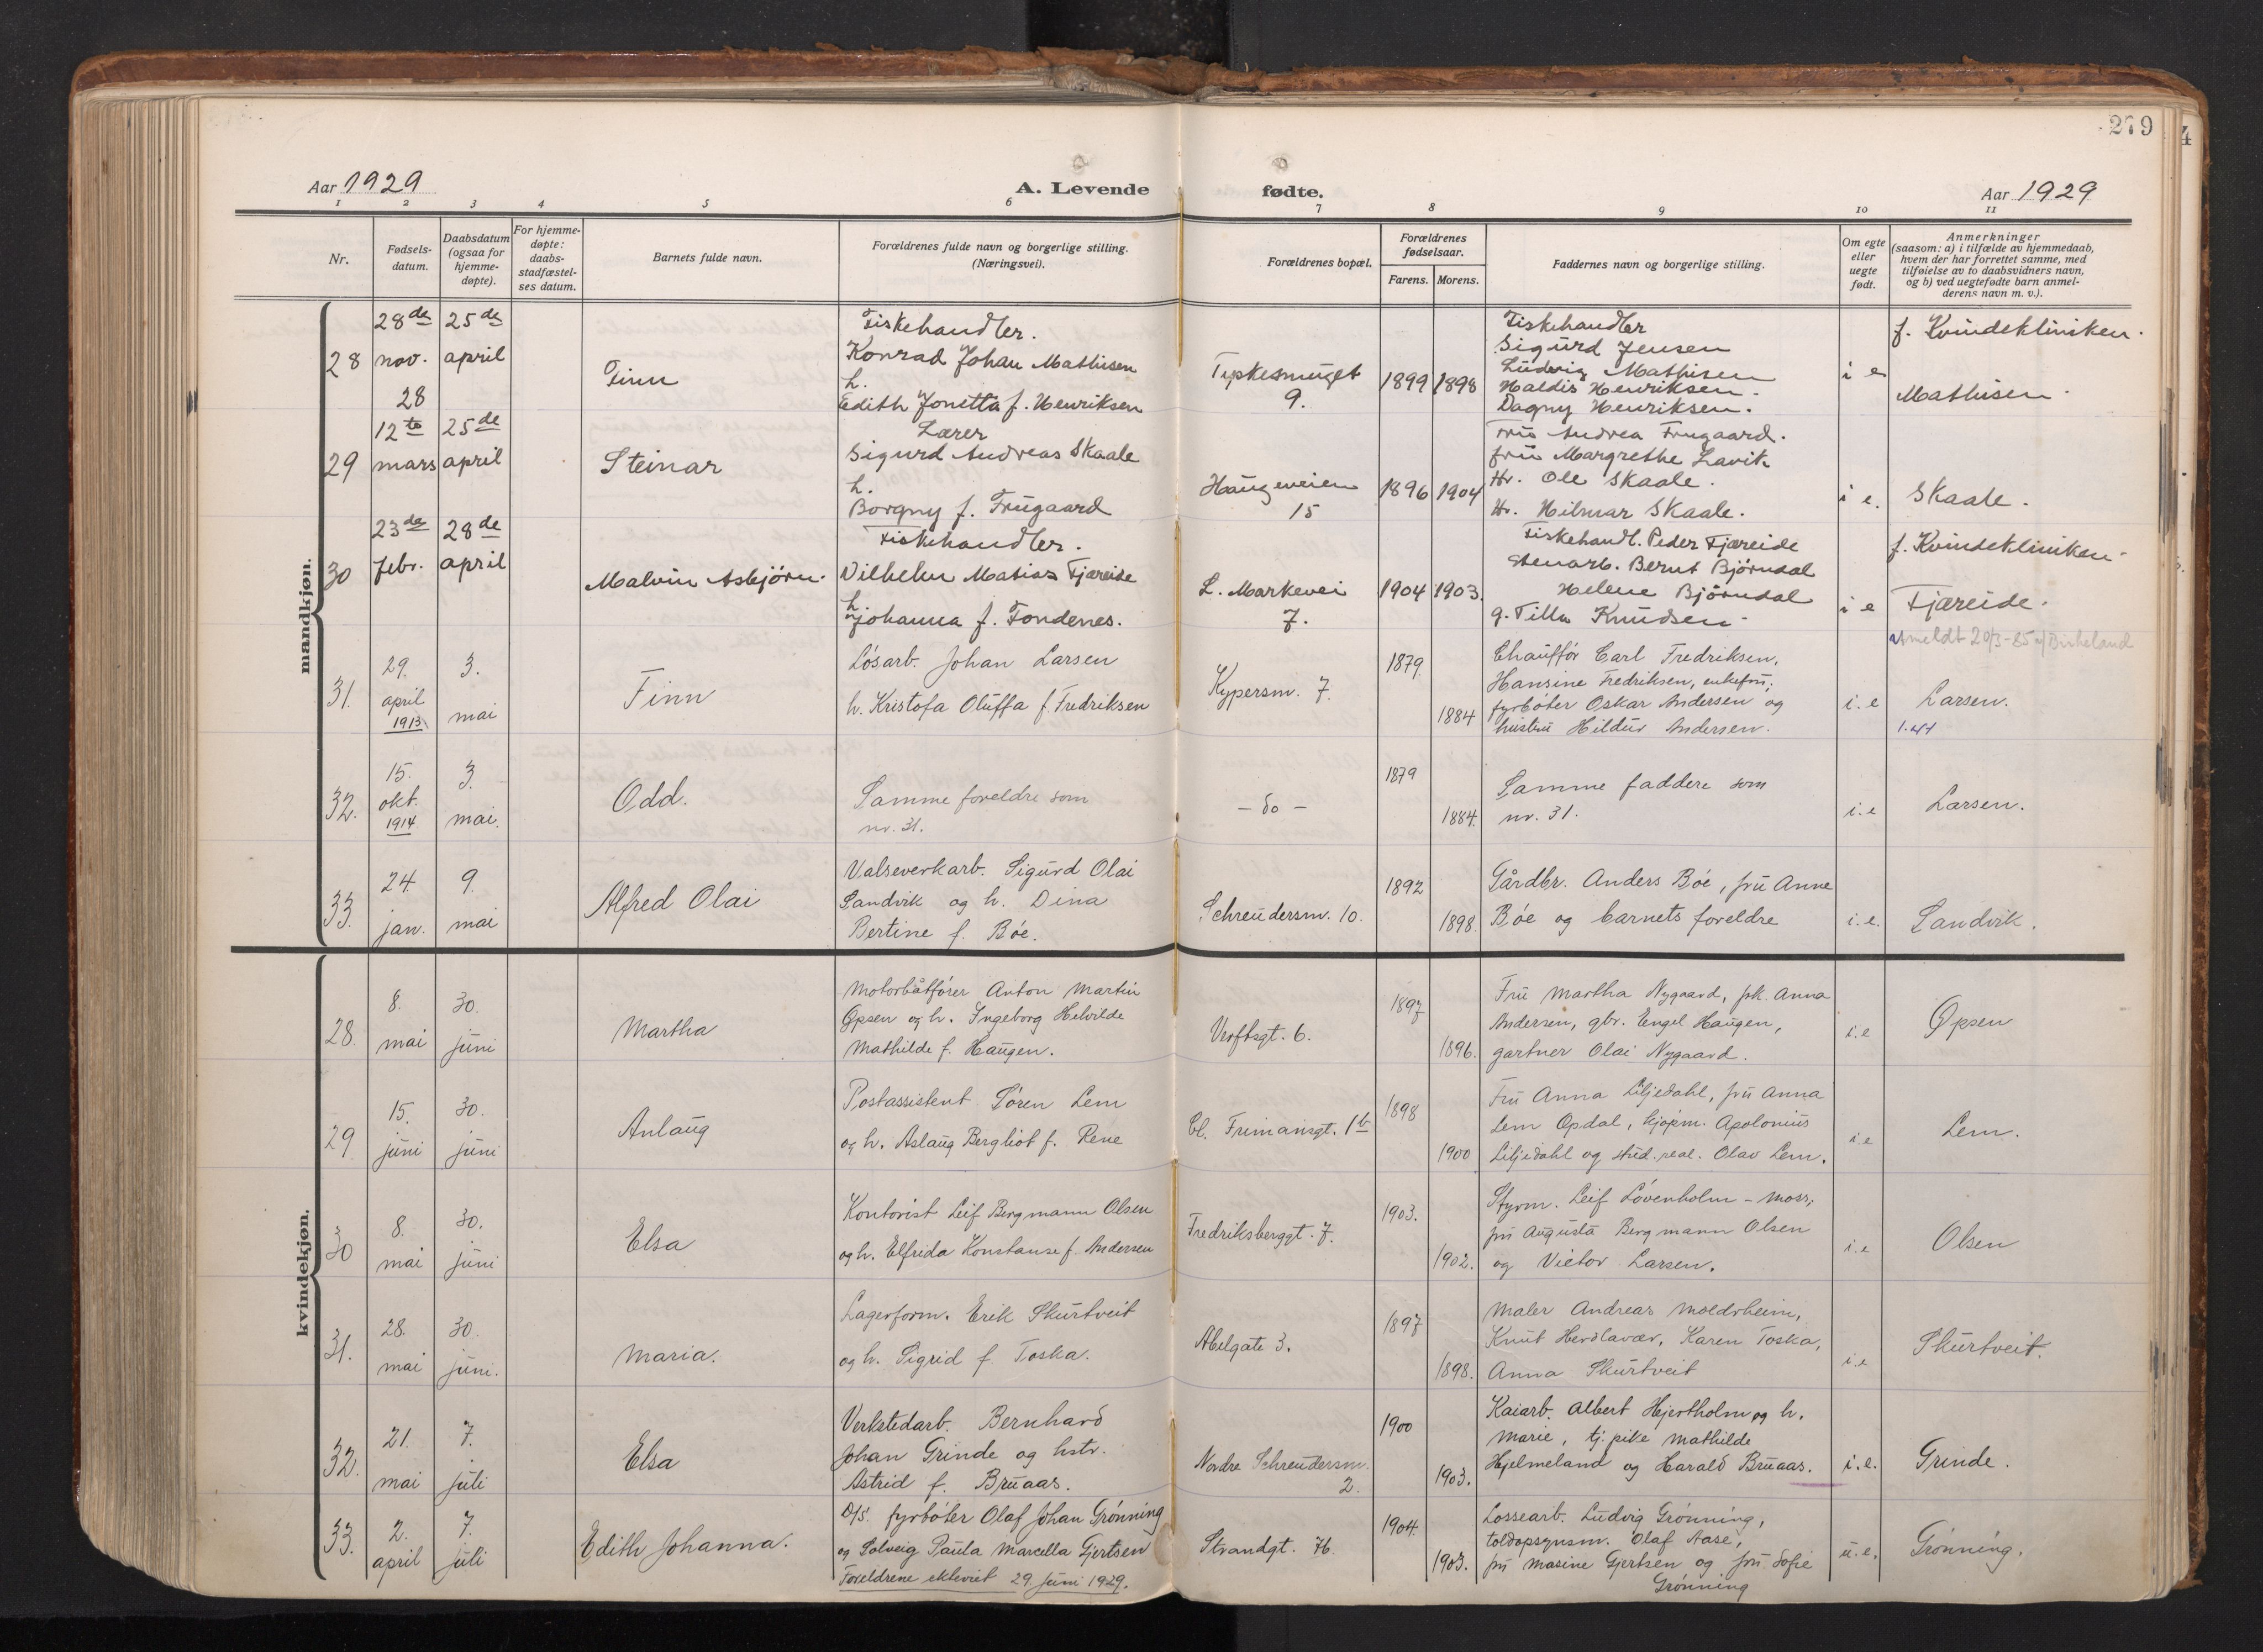 279
4
Aar 1929
A. Levende fødte.
Aar 1929
1 2 3 4 5 6 7 8 9 10 11
Nr.
Fødsels-
datum.
Daabsdatum
(ogsaa for
hjemme-
døpte).
For hjemme-
døpte:
daabs-
stadfæstel-
ses datum.
Barnets fulde navn.
Forældrenes fulde navn og borgerlige stilling.
(Næringsvei).
Forældrenes bopæl.
Forældrenes
fødselsaar.
Farens. Morens.
Faddernes navn og borgerlige stilling.
Om egte
eller
uegte
født.
Anmerkninger
(saasom: a) i tilfælde av hjemmedaab,
hvem der har forrettet samme, med
tilføielse av to daabsvidners navn,
og b) ved uegtefødte barn anmel-
derens navn m. v.).
mandkjøn.
28
28de
nov.
28
25de
april
Finn
Fiskehandler.
Konrad Johan Mathisen
h.
Edith Jonetta f. Henriksen
Tyskesmuget
9.
1899 1898
Fiskehandler
Sigurd Jensen
Ludvig Mathisen
Haldis Henriksen.
Dagny Henriksen.
i e
f. Kvindekliniken.
Mathisen.
29
12te
mars
25de
april
Steinar
Lærer
Sigurd Andreas Skaale
h.
Borgny f. Frugaard
Haugeveien
15
1896 1904
Fru Andrea Frugaard.
fru Margrethe Lavik.
Hr. Ole Skaale.
Hr. Hilmar Skaale.
i e.
Skaale.
30
23de
febr.
28de
april
Malvin Asbjörn.
Fiskehandler.
Vilhelm Matias Fjæreide
h.
Johanna f. Tondenes.
L. Markevei
7.
1904 1903.
Fiskehandl. Peder Fjæreide
Stenarb. Bernt Björndal
Helene Björndal
g. Tilla Knudsen
i e
f. Kvindekliniken
Fjæreide.
31.
29.
april
1913
3.
mai
Finn
Løsarb. Johan Larsen
h. Kristofa Oluffa f. Fredriksen
Kypersm. 7.
1879.
1884
Chauffør Carl Fredriksen,
Hansine Fredriksen, enkefru,
fyrbøter Oskar Andersen og
hustru Hildur Andersen.
i. e
Larsen.
32.
15.
okt.
1914
3.
mai.
Odd.
Samme foreldre som
nr. 31.
- do -
1879
1884.
Samme faddere som
nr. 31.
i. e
Larsen.
33.
24.
jan.
9.
mai
Alfred Olai
Valseverkarb. Sigurd Olai
Sandvik og h. Dina
Bertine f. Bøe.
Schreudersm. 10.
1892
1898.
Gårdbr. Anders Bøe, fru Anne
Bøe og barnets foreldre
i. e.
Sandvik.
kvindekjøn.
28.
8.
mai
30.
juni
Martha
Motorbåtfører Anton Martin
Opsen og h. Ingeborg Helvilde
Mathilde f. Haugen.
Verftsgt. 6.
1897
1896.
Fru Martha Nygaard, frk. Anna
Andersen, gbr. Engel Haugen,
gartner Olai Nygaard.
i. e
Opsen
29.
15.
juni
30.
juni
Anlaug
Postassistent Søren Lem
og h. Aslaug Bergliot f. Rene
Cl. Frimansgt. 1b
1898
1900
Fru Anna Liljedahl, fru Anna
Lem Opdal, kjøpm. Apolonius
Liljedahl og stud. real. Olav Lem.
i. e
Lem.
30
8.
mai
30.
juni
Elsa
Kontorist Leif Bergmann Olsen
og h. Elfrida Konstanse f. Andersen
Fredriksberggt. 7.
1903.
1902.
Styrm. Leif Løvenholm - Moss,
fru Augusta Bergmann Olsen
og Victor Larsen.
i. e
Olsen
31.
28.
mai
30.
juni.
Maria.
Lagerform. Erik Skurtveit
og h. Sigrid f. Toska.
Abelgate 3.
1897
1898.
Maler Andreas Moldrheim,
Knut Herdlavær, Karen Toska,
Anna Skurtveit
i. e
Skurtveit.
32.
21.
mai
7.
juli
Elsa
Verkstedarb. Bernhard
Johan Grinde og hstr.
Astrid f. Bruaas.
Nordre Schreudersm.
2.
1900
1903.
Kaiarb. Albert Hjertholm og h.
Marie, tj. pike Mathilde
Hjelmeland og Harald Bruaas.
i. e.
Grinde.
33.
2.
april
7.
juli
Edith Johanna.
D/S. fyrbøter Olaf Johan Grønning
og Solveig Paula Marcella Gjertsen
Foreldrene ekteviet 29. juni 1929.
Strandgt. 76.
1904.
1903.
Lossearb. Ludvig Grønning,
toldopsynsm. Olaf Aase,
fru Masine Gjertsen og fru Sofie
Grønning
u. e.
Grønning.